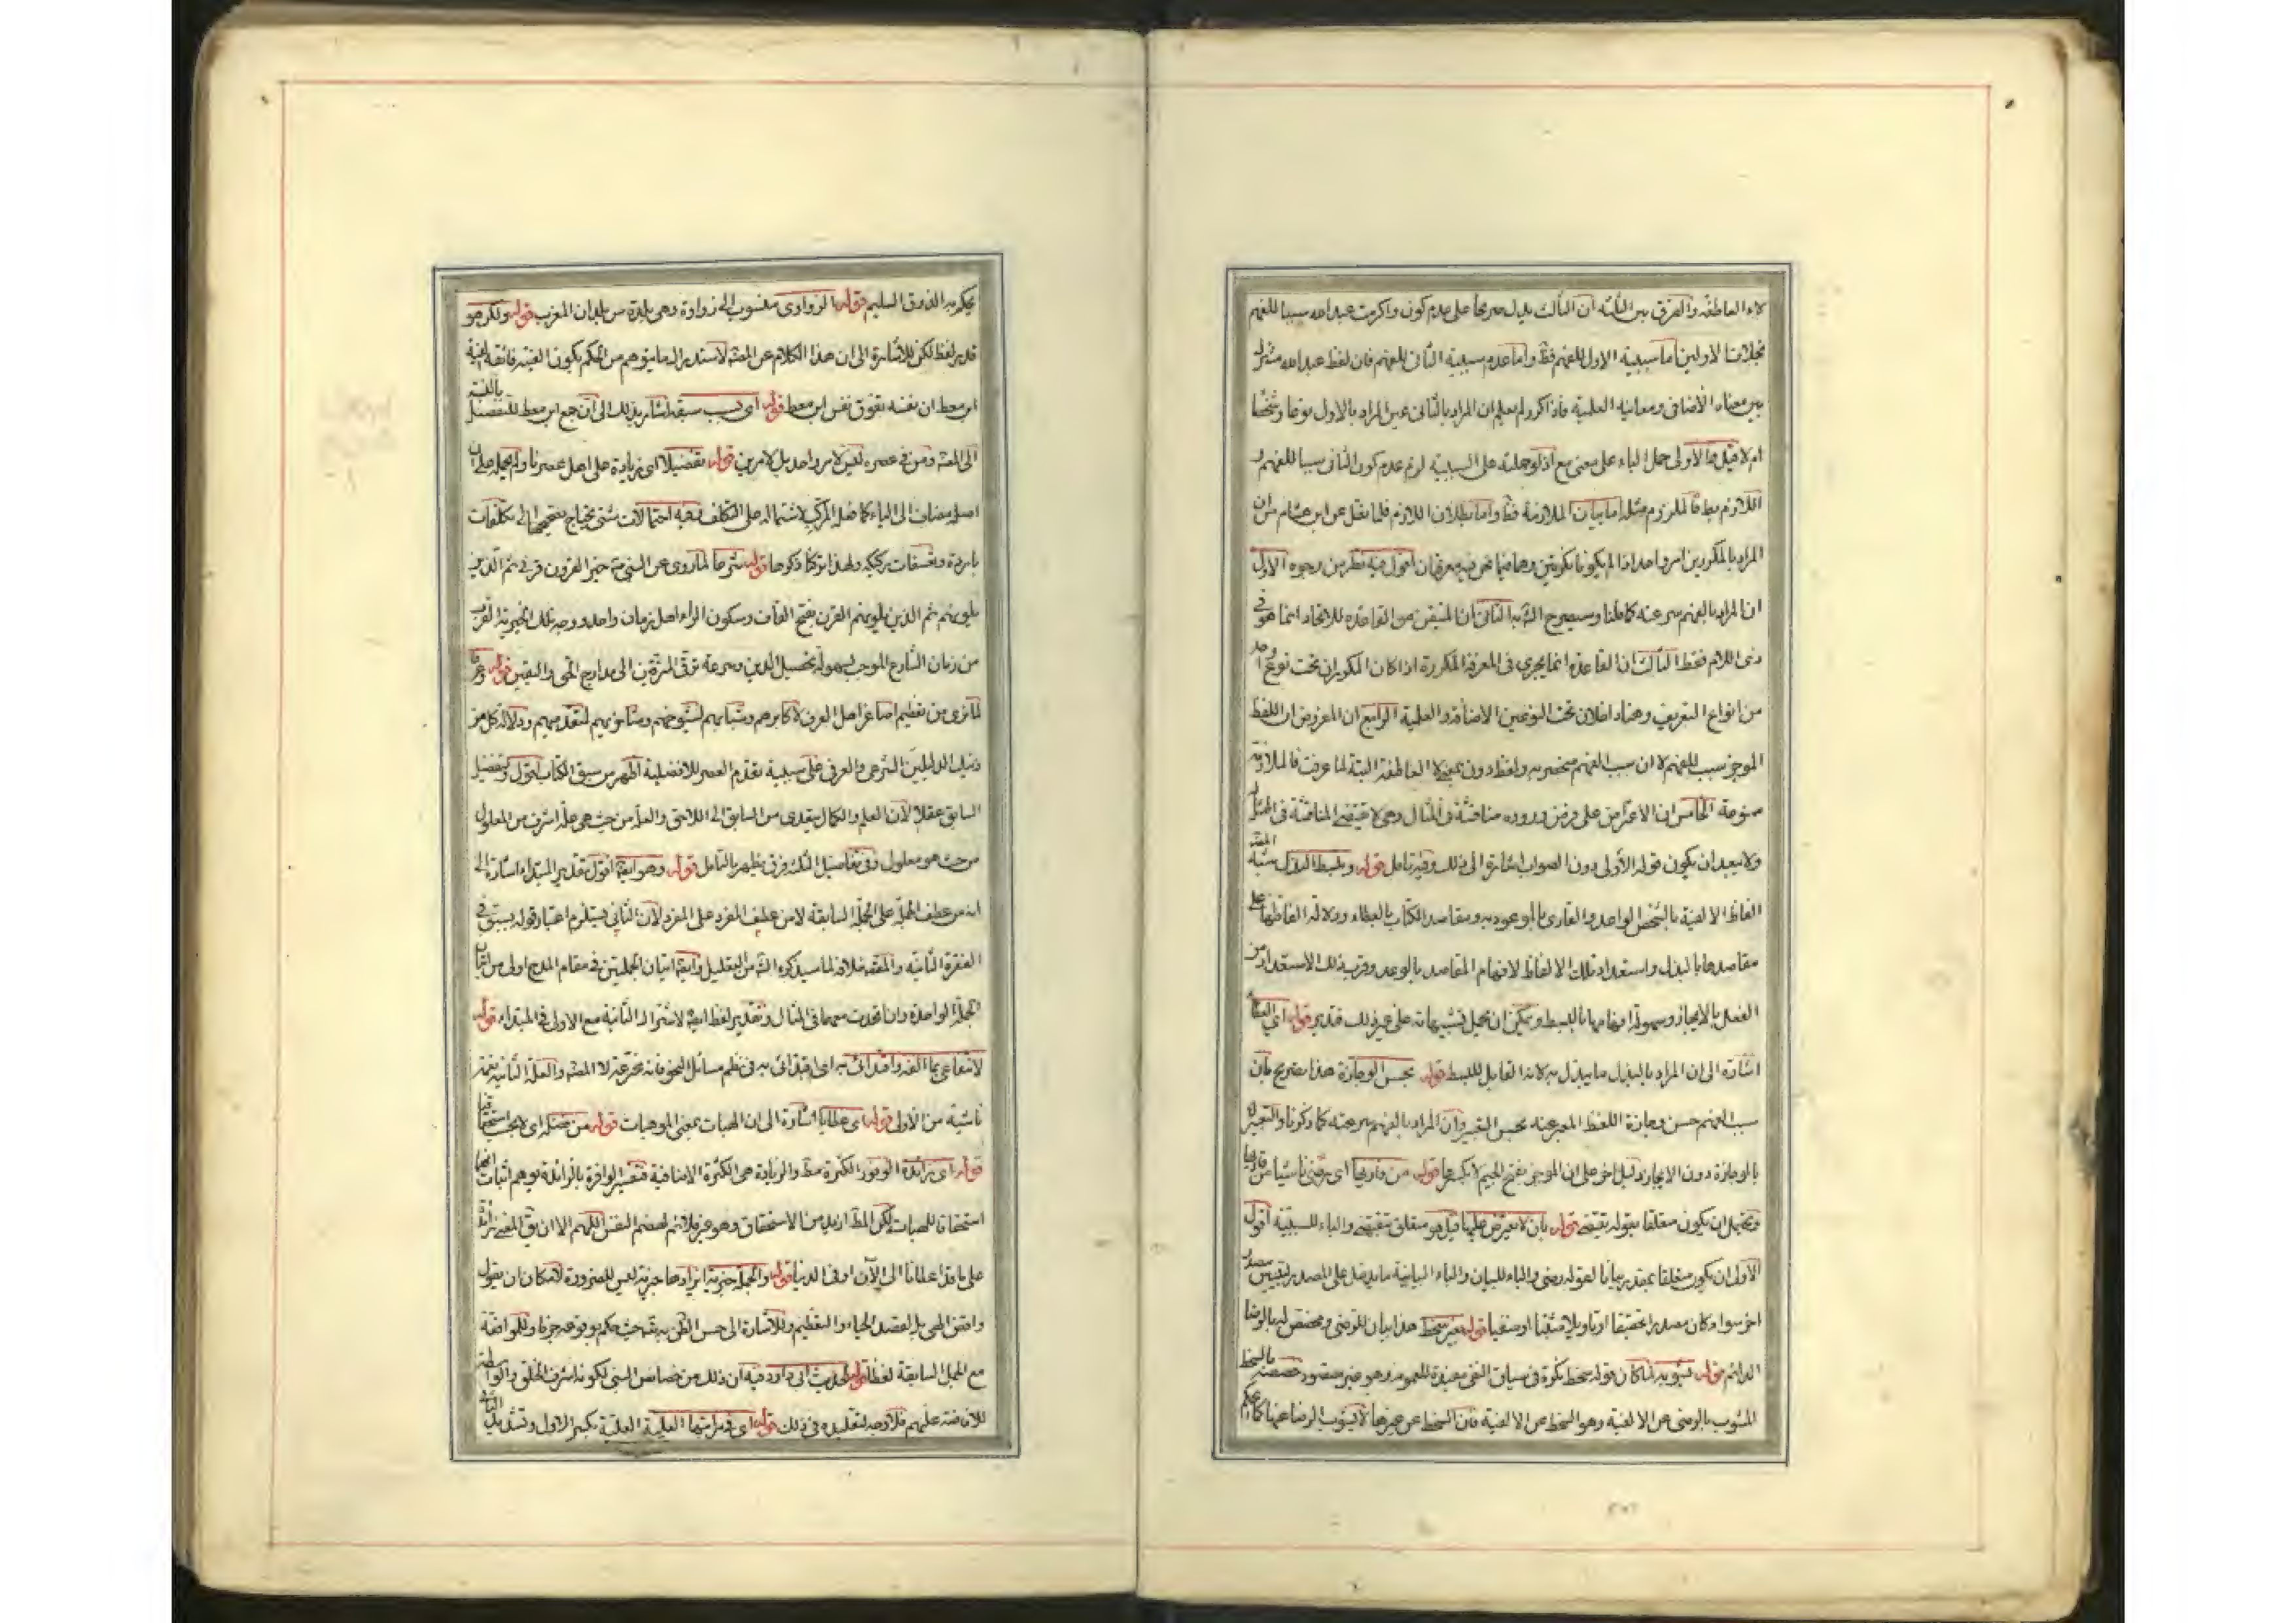 لاء العاطفة والفرق بين الثلثة ان الثالث يدل صريحا على عدم كون واكرمت عبد الله سببا للفهم
بخلاف الاولين اما سببية الاول للفهم فقط واما عدم سببية الثاني للفهم فان لفظ عبد الله مشترك
بين معناه الاضافى ومعانيه العلمية فاذا كرر لم يعلم ان المراد بالثانى عين المراد بالاول نوعا وشخصا
ام لا قيل هنا الاولى حمل الباء على معنى مع اذ لو حملته على السببية لزم عدم كون الثانى سببا للفهم و
اللازم بط فالملزوم مثله اما بيان الملازمة فظ واما بطلان اللازم فلما نقل عن ابن هشام من ان
المراد بالمكررين امر واحد اذا لم يكونا نكرتين وهاهنا نحن فيه معرفتان اقول فيه نظر من وجوه الاول
ان المراد بالفهم سرعته كما قلنا وسيصرح الش به الثانى ان المتيقن من القاعدة للاتحاد انما هو فى
ذى اللام فقط الثالث ان القاعدة انما يجرى فى المعرفة المكررة اذا كان المكرران تحت نوع واحد
من انواع التعريف وهنا داخلان تحت النوعين الاضافة والعلمية الرابع ان المفروض ان اللفظ
الموجز سبب للفهم لا ان سبب الفهم منحصر به ولفظ دون بمعنى لا العاطفة البتة لما عرفت فالملازمة
ممنوعة الخامس ان الاعتراض على فرض وروده مناقشة فى المثال وهى لا تقتضى المناقشة فى الممثل
ولا يبعد ان يكون قوله الأولى دون الصواب اشارة الى ذلك وفيه تامل قوله وتبسط البذل شبه المصنف
الفاظ الالفية بالشخص الواعد والقارى بالموعود به ومقاصد الكتاب بالعطاء ودلالة الفاظها على
مقاصدها بالبذل واستعداد تلك الالفاظ لافهام المقاصد بالوعد وقرب ذلك الاستعداد من
الفعل بالايجاز وسهولة افهامها بالبسط ويمكن ان يحمل تشبيهاته على غير ذلك فتدبر قوله اى العطاء
اشارة الى ان المراد بالبذل ما يبذل به لانه القابل للبسط قوله بحسن الوجازة هذا تصريح بان
سبب الفهم حسن وجازة اللفظ المعبر عنه بحسن التعبير وان المراد بالفهم سرعته كما ذكرنا والتعبير
بالوجازة دون الايجاز دليل اخر على ان الموجز بفتح الجيم لا بكسرها قوله من قاريها اى رضى ناشيا من قاريها
ويحتمل ان يكون متعلقا بقوله تقتضى قوله بان لا يعترض عليها قيل هو متعلق بتقتضى والباء للسببية اقول
الاولى ان يكون متعلقا بمقدر بيانا لقوله رضى والباء للبيان والباء البيانية ما يدخل على المصدر لتبيين مصدر
اخر سواء كان مصدرا حقيقا او تاويلا مثبتا او منفيا قوله بغير سخط هذا بيان للرضى ومخصص له بالرضا
الدائم قوله يشوبه لما كان قوله سخط نكرة فى سياق النفى مفيدة للعموم وهو غير مقصود خصصه بالسخط
المشوب بالرضى عن الالفية وهو السخط عن الالفية فان السخط عن غيرها لا يشوب الرضا عنها كما
يحكم به الذوق السليم قوله الزواوى منسوب الى زواوة وهى بلدة من بلدان المغرب قوله ولكن هو
قدر لفظ لكن للاشارة الى ان هذا الكلام عن المصنف لاستدراك ما يتوهم من الحكم بكون الفيته فائقة الفية
ابن معط ان نفسه تفوق نفس ابن معط قوله اى بسبب سبقه اشار بذلك الى ان جمع ابن معط للتفضيل بالنسبة
الى المصنف ومن فى عصره ليس لامر واحد بل لامرين قوله تفضيلا اى زيادة على اهل عصرنا ولم يحمله على ان
اصله مضاف الى الياء كما فعله المركب لاشتماله على التكلف وفيه احتمالات شتى يحتاج تصحيحها الى تكلفات
باردة وتعسفات ركيكة ولهذا تركنا ذكرها قوله شرعا لما روى عن النبى ص خير القرون قرنى ثم الذين
يلونهم ثم الذين يلونهم القرن بفتح القاف وسكون الراء اهل زمان واحد ووجه تلك الخيرية القرب
من زمان الشارع الموجب لسهولة تحصيل الدين وسرعة ترقى المترقين الى مدارج الحق واليقين قوله وعرفا
لما نرى من تعظيم اصاغر اهل العرف لاكابرهم وشبابهم لشيوخهم ومتاخريهم لمتقدميهم ودلالة كل من
ذينك الدليلين الشرعى والعرفى على سببية تقدم العصر للافضلية اظهر من سبق الكتاب اقول وتفضيل
السابق عقلا لان العلم والكمال يتعدى من السابق الى اللاحق والعلة من حيث هى علة اشرف من المعلول
من حيث هو معلول وفى تفاصيل الثلثة فرق يظهر بالتامل قوله وهو ايضا اقول تقدير المبتداء اشارة الى
انه من عطف الجملة على الجملة السابقة لا من عطف المفرد على المفرد لان الثانى يستلزم اعتبار قوله بسبق فى
الفقرة الثانية والمصنف خلافه لما سيذكره الش من التعليل وايضا اتيان الجملتين فى مقام المدح اولى من اتيان
الجملة الواحدة وان اتحدت معهما فى المثال وتقدير لفظ ايضا لاشتراك الثانية مع الاولى فى المبتداء قوله
لانتفاعى بما الفه واقتدائى به اى اقتدائى به فى نظم مسائل النحو فانه مخترعه لا المصنف والعلة الثانية نعمة
ناشية من الاولى قوله اى عطايا اشارة الى ان الهبات بمعنى الموهبات قوله من فضله اى لا بحسب استحقاقنا
قوله اى زائدة الوفور الكثرة مط والزيادة هى الكثرة الاضافية فتفسير الوافرة بالزائدة يوهم اثبات
استحقاقنا للهبات لكن المط ازيد من الاستحقاق وهو غير ملائم لهضم النفس اللهم الا ان يق المعنى زائدة
على ما قد اعطانا الى الآن او فى الدنيا قوله والجملة خبرية ايرادها خبرية ليس للضرورة لامكان ان يقول
واقض الهى بل لقصد الحياء والتعظيم وللاشارة الى حسن الظن به تع حيث حكم بوقوعه جزما وللموافقة
مع الجمل السابقة لفظا قوله لحديث ابى داود فيه ان ذلك من خصائص النبى لكونه اشرف الخلق والواسطة
للافاضة عليهم فلا وجه لتقليده فى ذلك قوله اى فى مراتبها العلية العلية بكسر الاول وتشديد